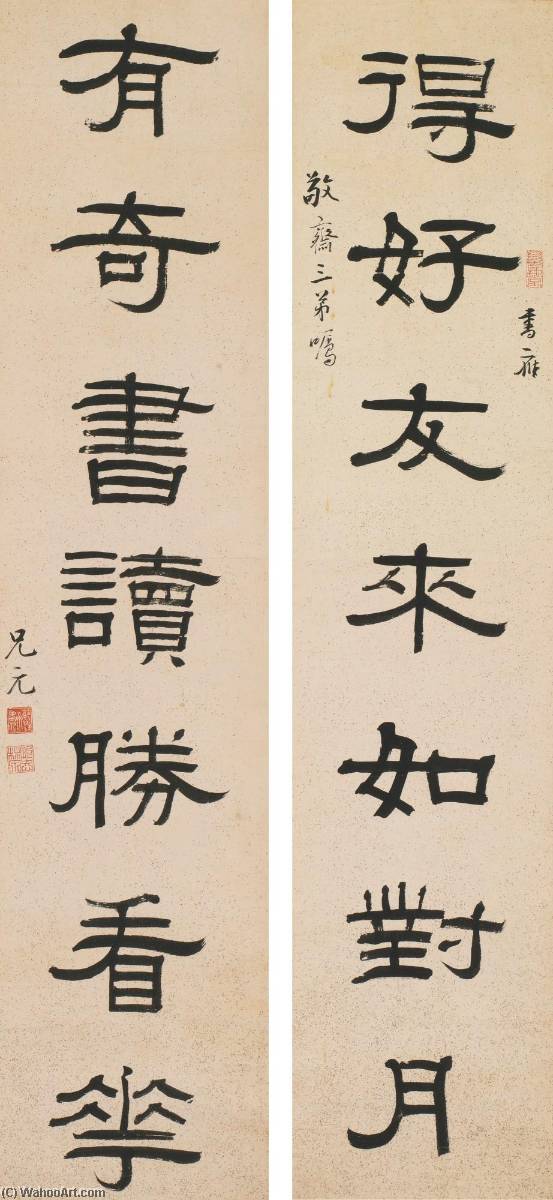 書應
得好友來如對月
敬齋三弟囑
有奇書讀勝看花
兄元
(C) WahooArt.com
(C) WahooArt.com